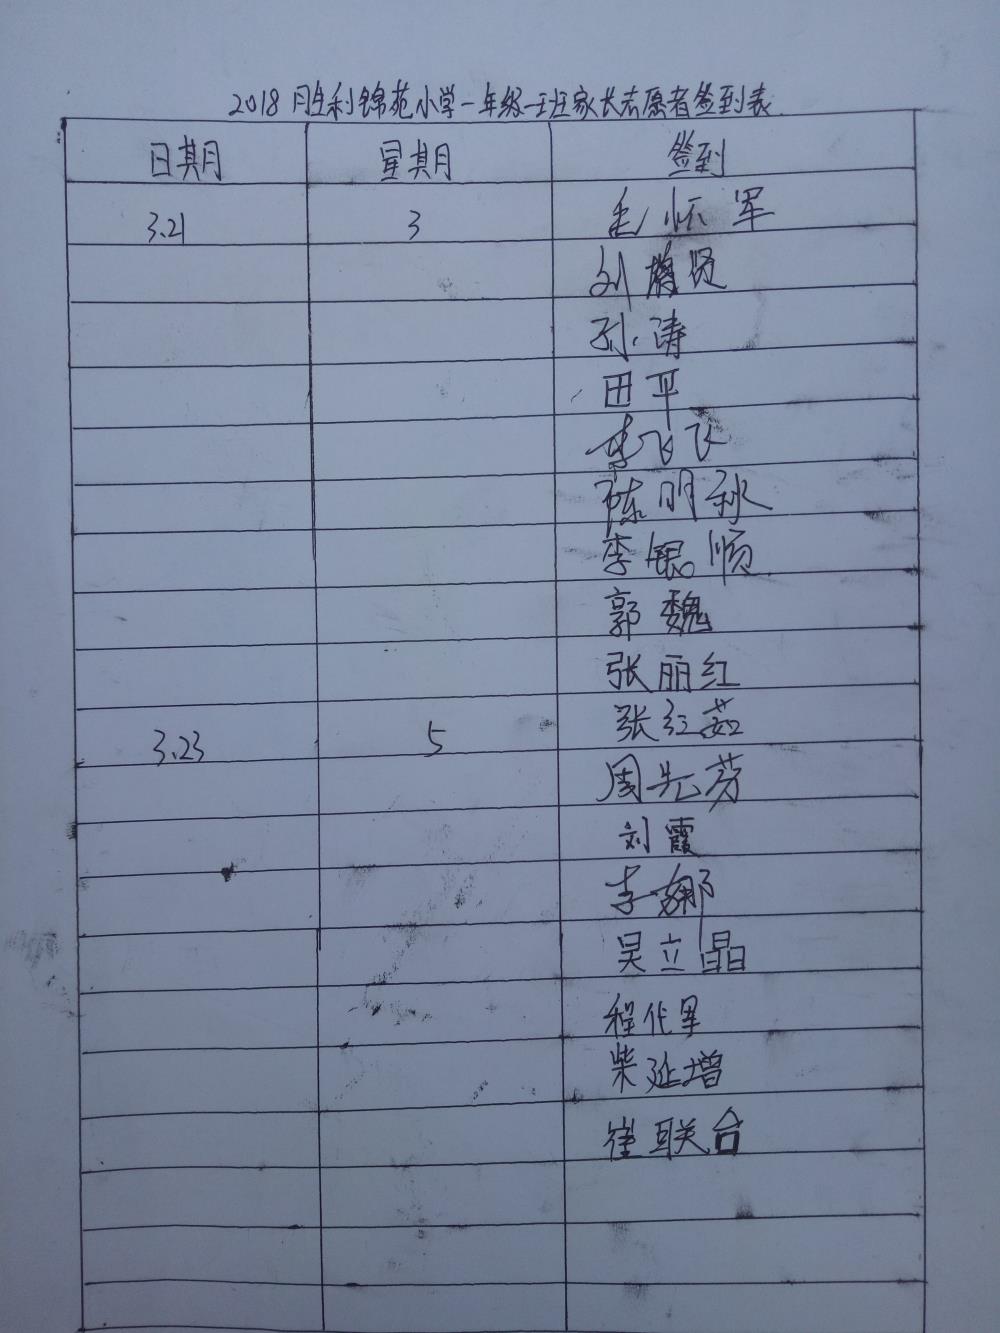 2018胜利锦苑小学一年级一班家长志愿者签到表
日期 星期 签到
3.21 3 毛怀军
刘 贤
孙涛
田平
李飞飞
陈明秋
李银顺
郭魏
张丽红
3.23 5 张红茹
周先芬
刘霞
李娜
吴立晶
程代军
柴延增
崔联合